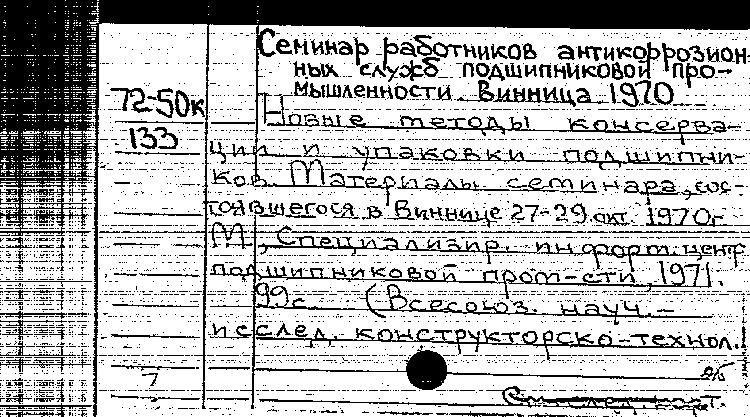 Семинар работников антикоррозион-
ных служб подшипниковой про-
мышленности. Винница. 1970
72-50к
133
Новые методы консерва-
ции и упаковки подшипни-
ков. Материалы семинара, сос-
тоявшегося в Виннице 27-29 окт. 1970г.
М., Специализир. информ. центр
подшипниковой пром-сти, 1971.
99с. (Всесоюз. науч.-
исслед. конструкторско-технол.
См. след. карт.